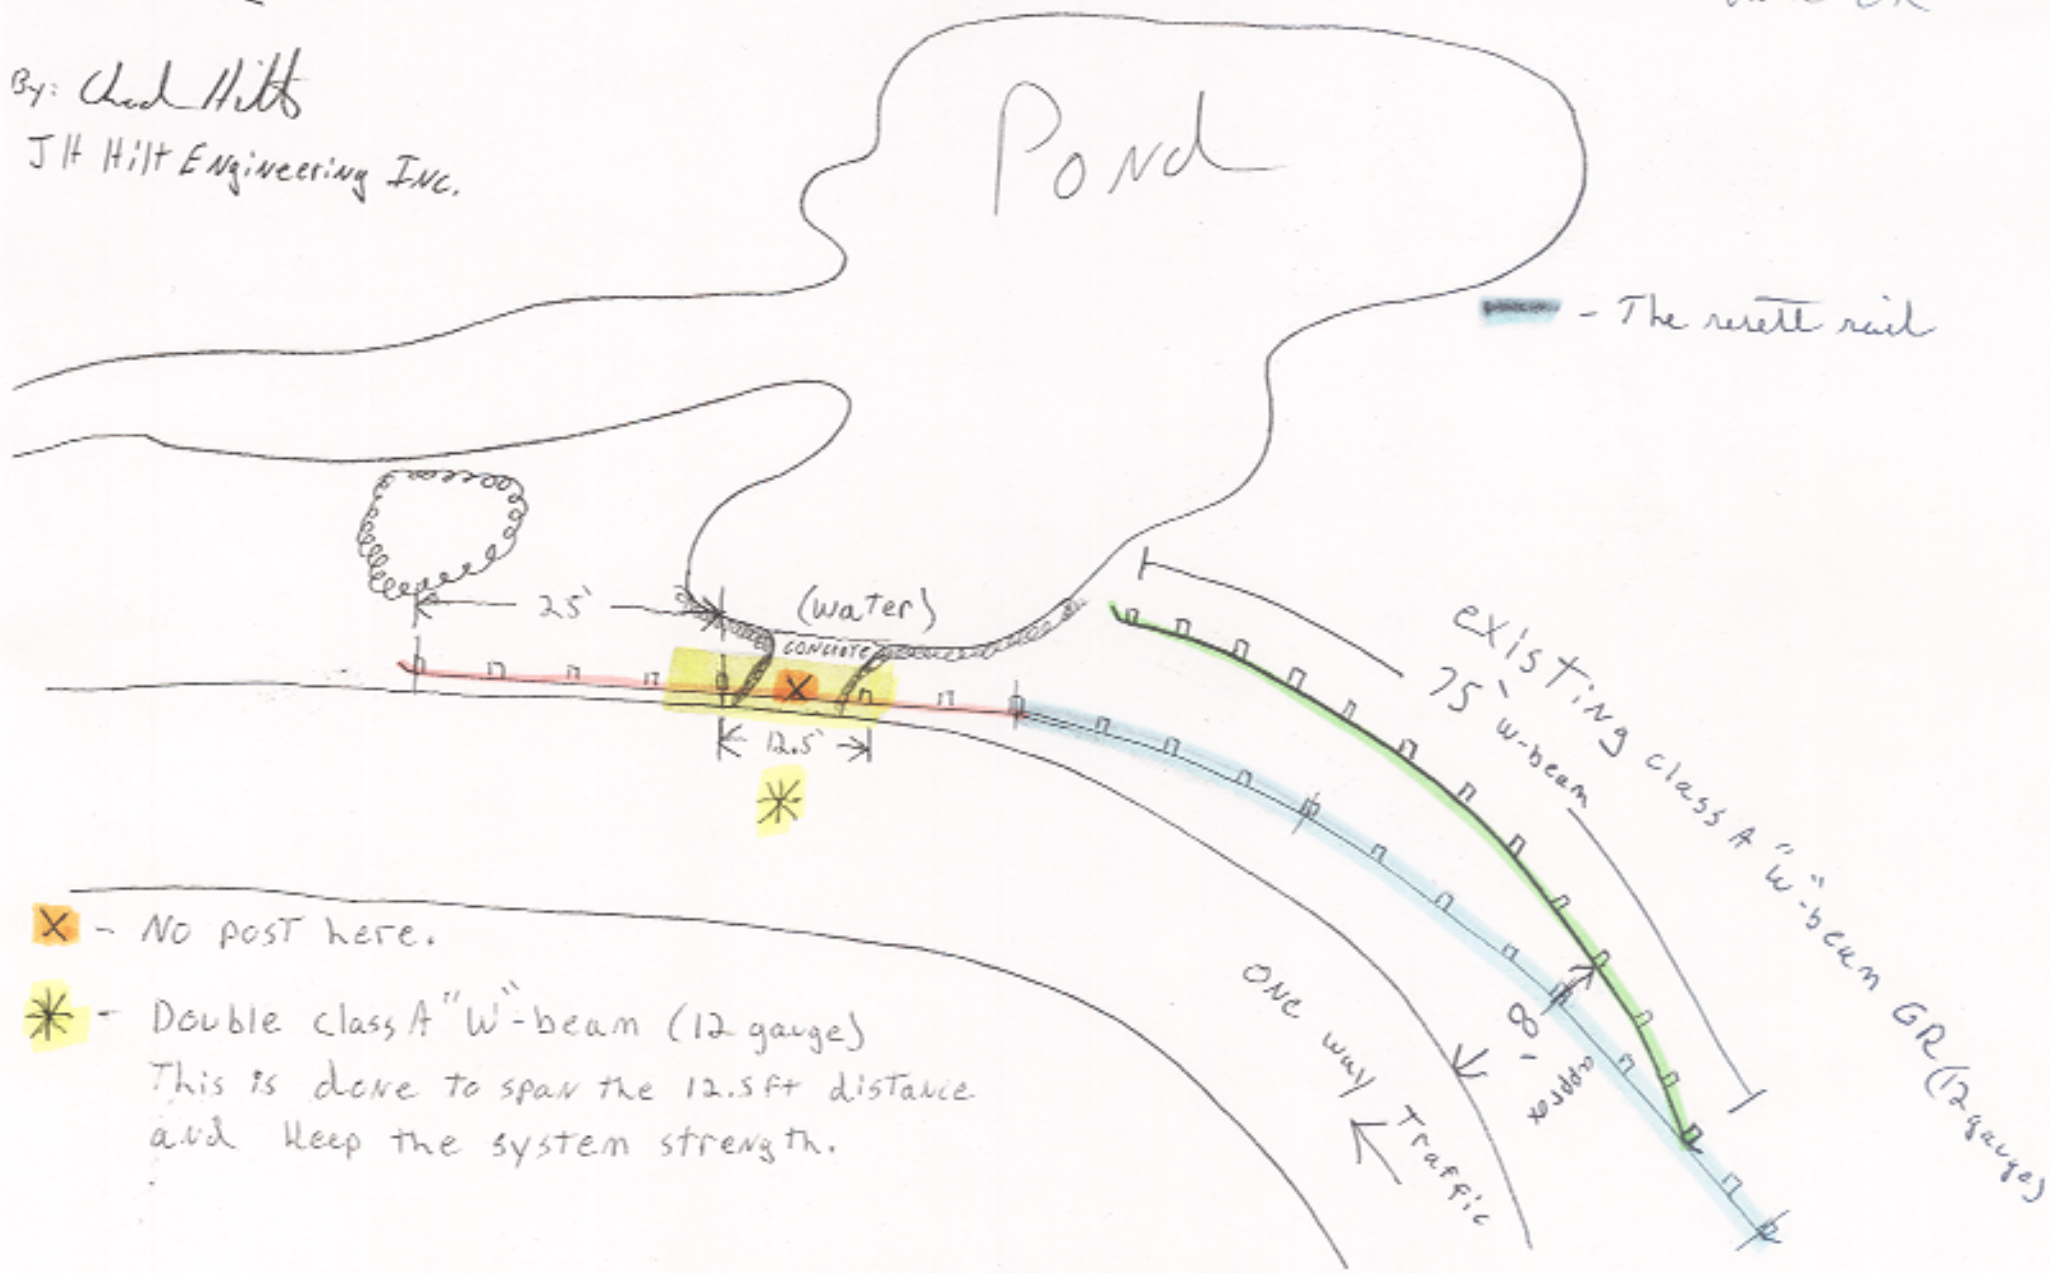 By: Chad Hilts
JH Hilt Engineering Inc.
Pond
- The resett rail
25'
(water)
CONCRETE
X
12.5'
existing class A "W"-beam GR (12 gauge)
75' w-beam
8'
ONE way Traffic
X - No post here.
- Double class A "W"-beam (12 gauge)
This is done to span the 12.5ft distance
and keep the system strength.